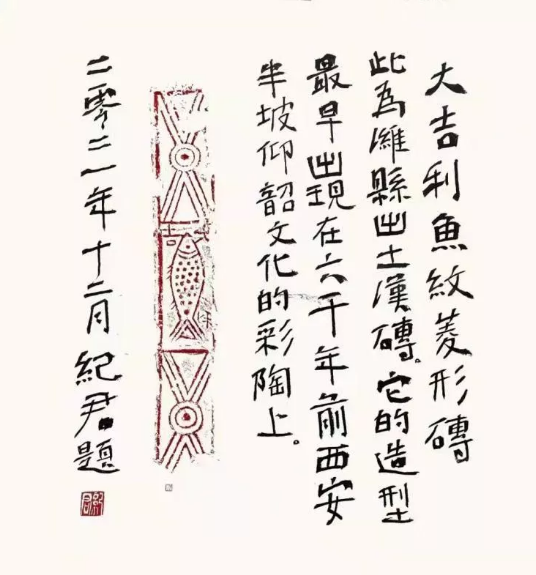 大吉利魚紋菱形磚
此為濰縣出土漢磚。它的造型
最早出現在六千年前西安
半坡仰韶文化的彩陶上。
二零二一年十二月紀君題